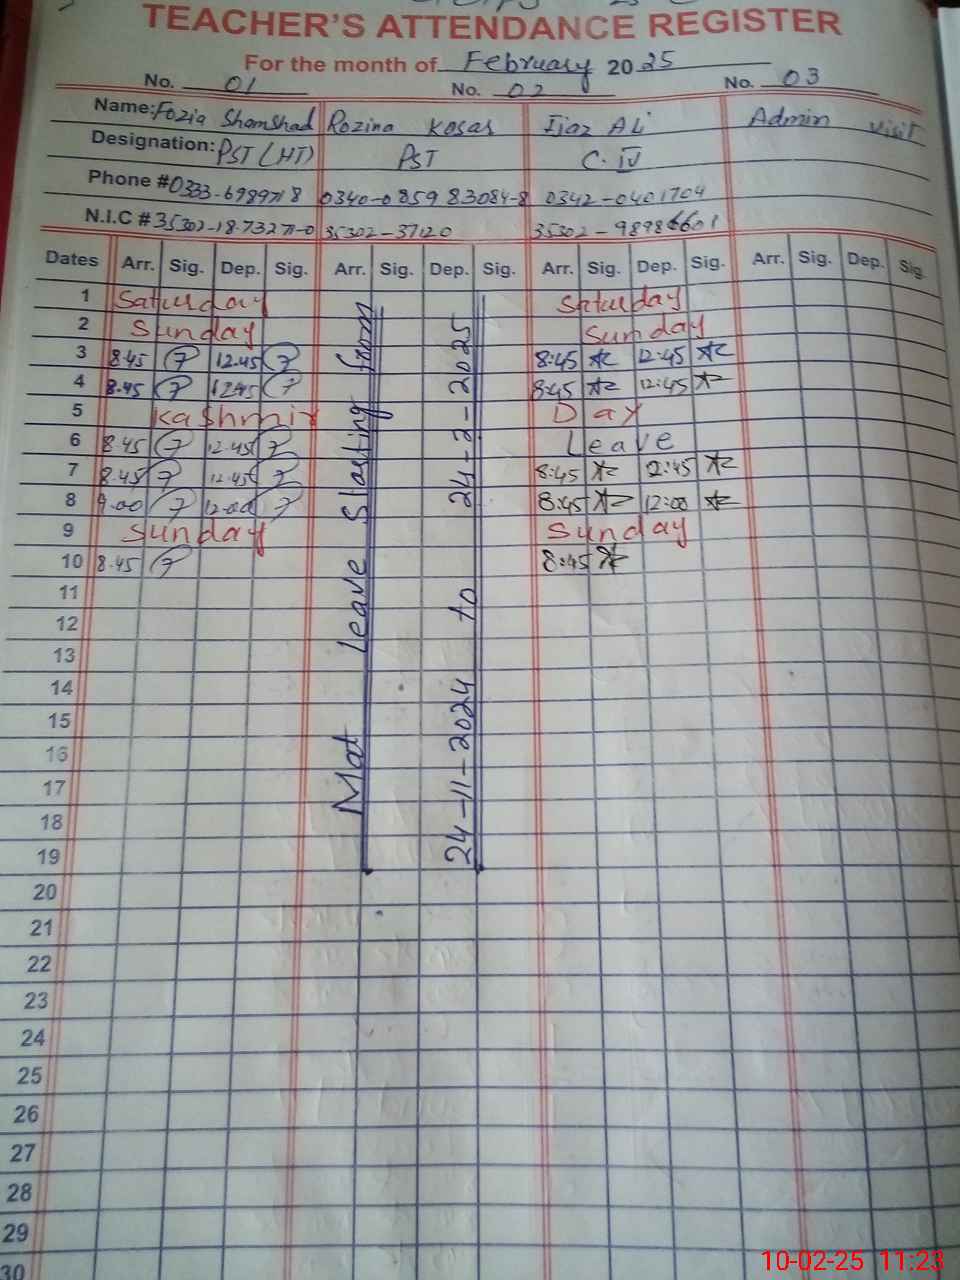 TEACHER'S ATTENDANCE REGISTER
For the month of February 2025
No. 01 No. 02 No. 03
Name: Fozia Shamshad Rozina Kosas Ijaz Ali Admin visit
Designation: PST (HT) PST C. IV
Phone # 0340-0859 83084-8 0342-0401704
N.I.C # 35302-37120
Dates Arr. Sig. Dep. Sig. Arr. Sig. Dep. Sig. Arr. Sig. Dep. Sig. Arr. Sig. Dep. Sig.
1 Saturday Saturday
2 Sunday Sunday
3 8.45 12.45 8:45 12:45
4 8.45 12.45 8:45 12:45
5 Kashmir Day
6 8.45 12.45 Leave
7 8.45 12.45 8:45 12:45
8 9.00 12.00 8:45 12:00
9 Sunday Sunday
10 8.45 8:45
11
12
13
14
15
16
17
18
19
20
21
22
23
24
25
26
27
28
29
30
Mat leave Starting from
24-11-2024 to 24-2-2025
10-02-25 11:23